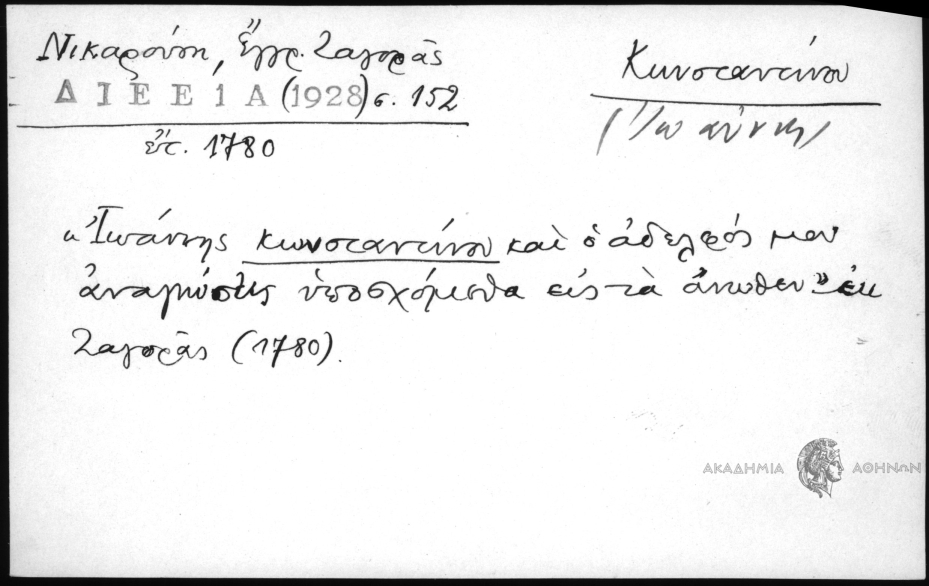 Νικαρούση, Ἔγγρ. Ζαγορᾶς
Δ Ι Ε Ε 1 Α (1928) σ. 152
ἔτ. 1780
Κωνσταντίνου
(Ἰωάννης)
«Ἰωάννης Κωνσταντίνου καὶ ὁ ἀδελφός μου
ἀναγνώστις ὑποσχόμεθα εἰς τὰ ἄνωθεν» ἐκ
Ζαγορᾶς (1780).
ΑΚΑΔΗΜΙΑ ΑΘΗΝΩΝ